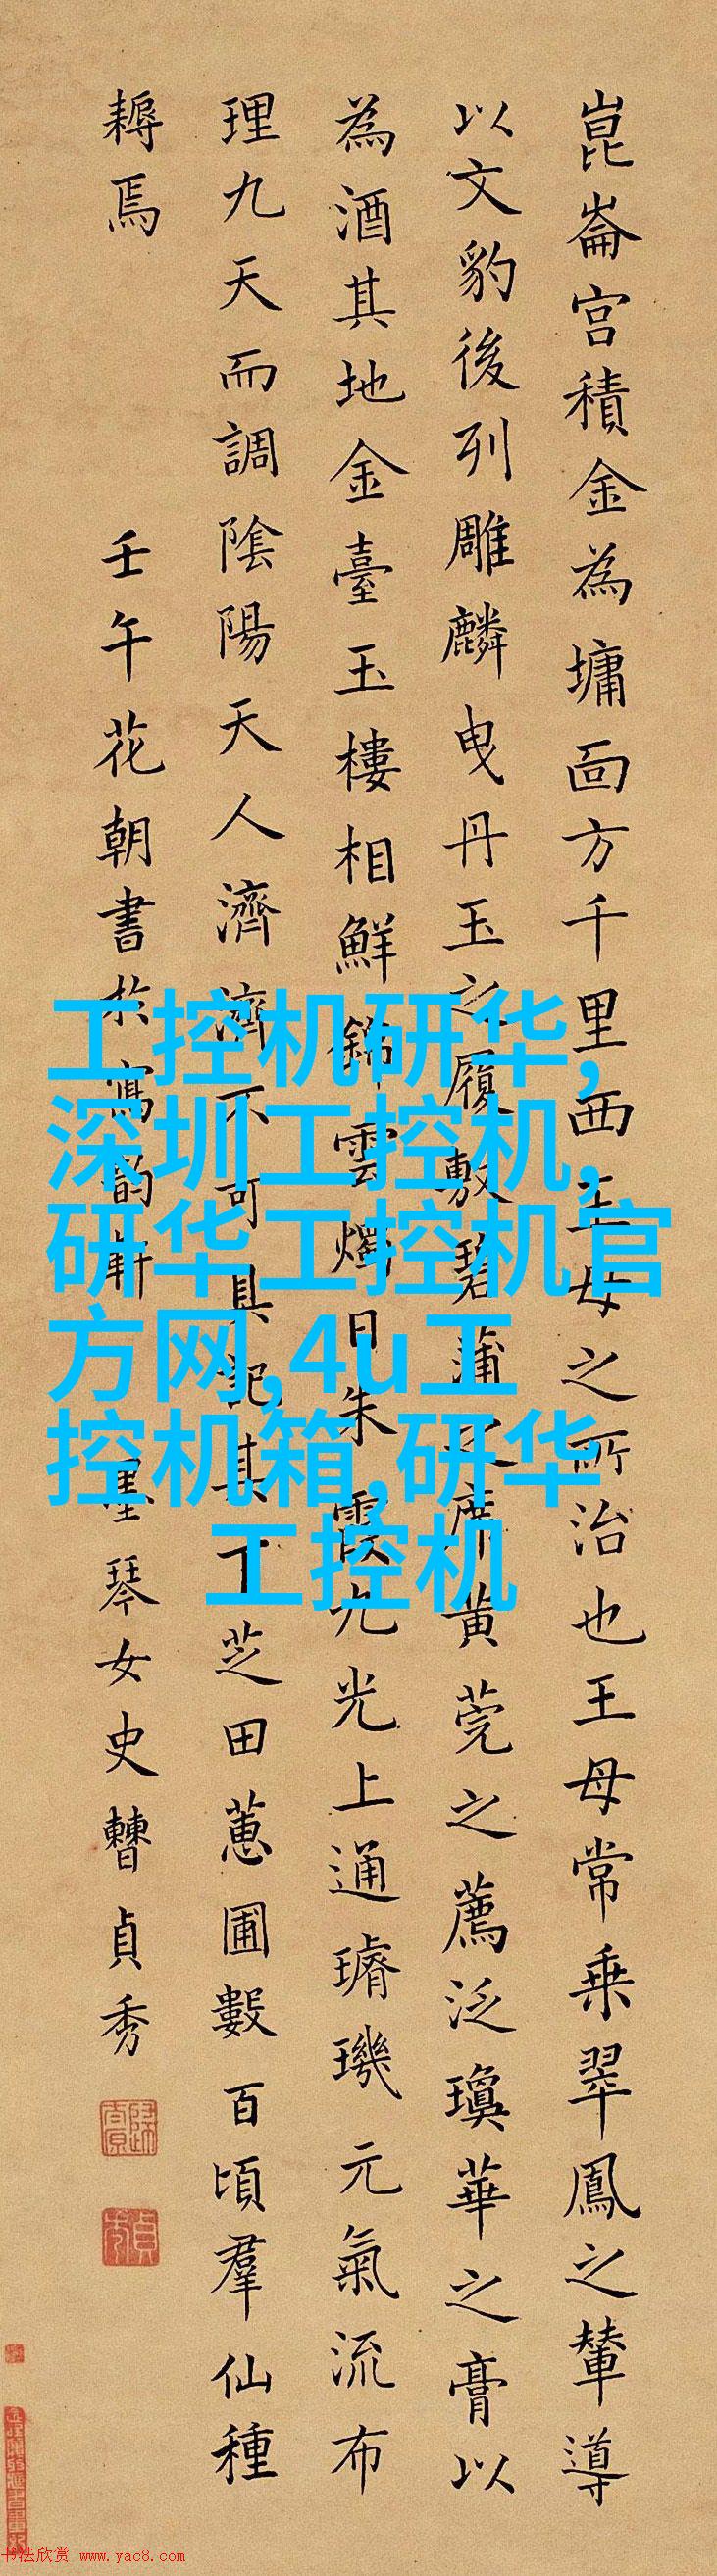 崑崙宮積金為墉面方千里西王母之所治也王母常乘翠鳳之輦導
以文豹後列雕麟曳丹玉之履敷碧蒲之席黃莞之薦泛瓊華之膏以
為酒其地金臺玉樓相鮮錦雲燭日朱霞九光上通璿璣元氣流布
理九天而調陰陽天人濟濟不可具記其下芝田蕙圃數百頃羣仙種
耨焉 壬午花朝書於寫韵軒 墨琴女史曹貞秀
工控机研华,
深圳工控机,
研华工控机官
方网,4u工
控机箱,研华
工控机
书法欣赏 www.yac8.com